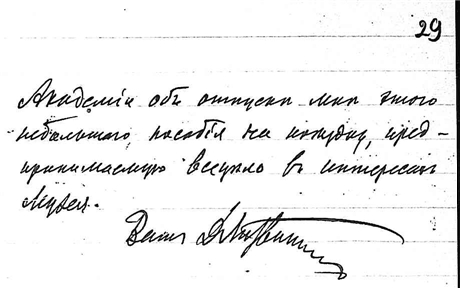 29
Академіи объ отпускѣ мнѣ этого
небольшого пособія на поѣздку, пред-
принимаемую всецѣло въ интересах
Музея.